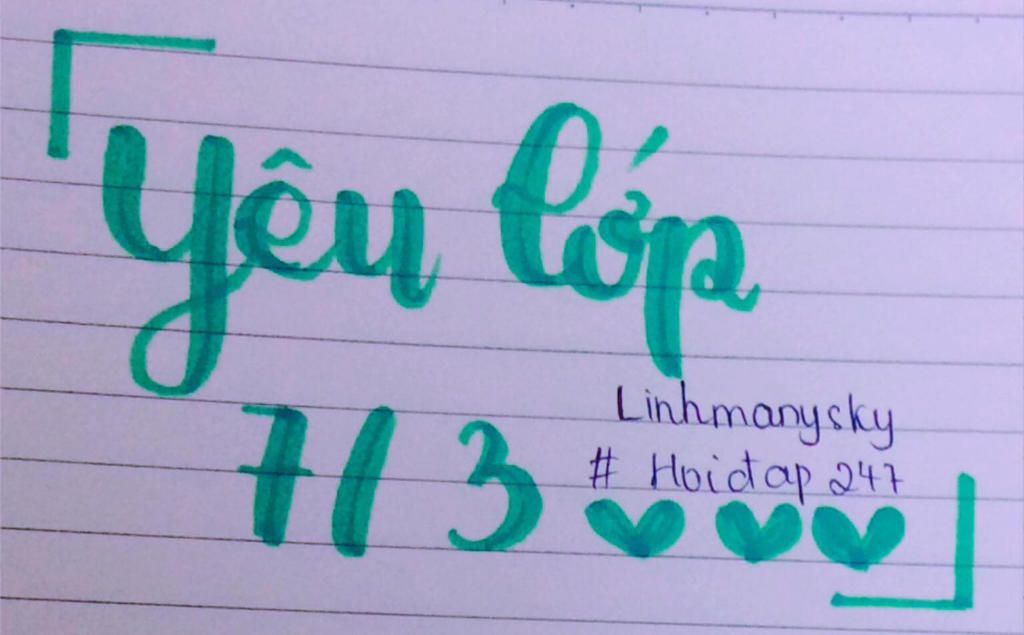 yêu lớp
713
Linhmanysky
# Hoidap 247